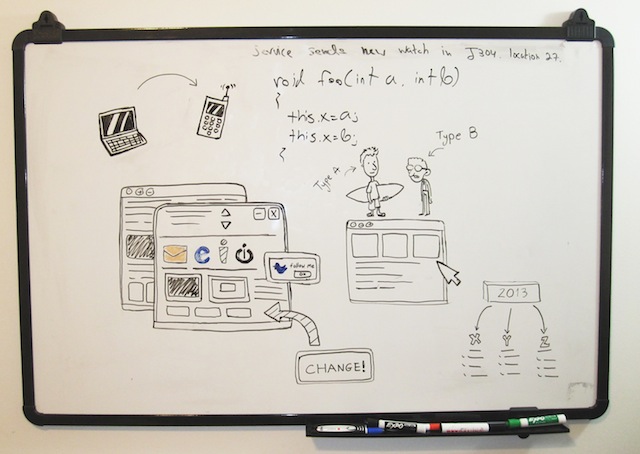 service sends new watch in J304, location 27.
void foo(int a, int b)
{
this.x=a;
this.x=b;
{
Type A
Type B
X
e
i
follow me
OK
CHANGE!
2013
X Y Z